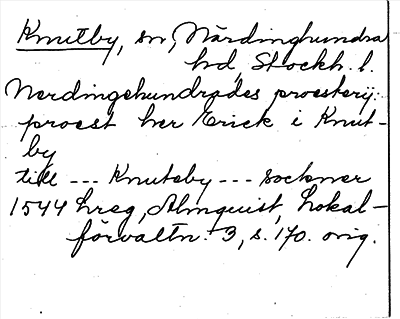 Knutby, sn, Närdinghundra
hd, Stockh. l.
Nerdingehundrades proesterij:
proest her Erick i Knut-
by
till --- Knutsby --- sockner
1544 hreg, Almquist, Lokal-
förvaltn. 3, s. 170. orig.